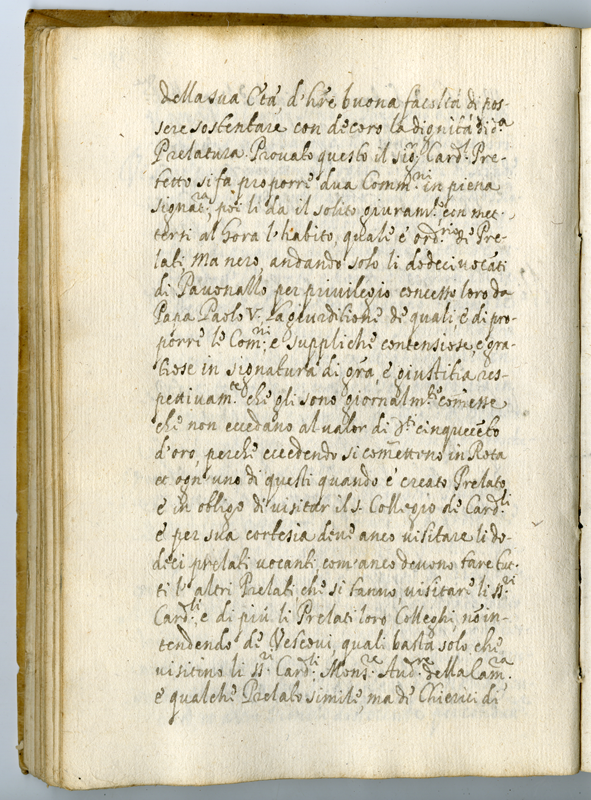 della sua Età, d'hr̃e buona facoltà di pos-
sere sostentare con decoro la dignità di d.a
Prelatura. Provato questo il sig.r Card.l Pre-
fetto si fa proporre dua Comm.ni in piena
signat.ra, poi li da il solito giuram.to con met-
tersi al hora l'habito, quale è ord.rio de Pre-
lati ma nero, andando solo li dodeci vocāti
di Pavonazzo per privilegio concesso loro da
Papa Paolo V. La giurditione de quali è di pro-
porre le Com.ni, e suppliche contensiose, e gra-
tiose in signatura di gr̃a, e giustitia res-
pettivam.te che gli sono giornalm.te comesse
che non eccedano al valor di cinquecēto
d'oro, perche eccedendo si comettono in Rota
et ogn'uno di questi quando è creato Prelato
è in obligo di visitar il s. Collegio de Card.li
e per sua cortesia deve anco visitare li do-
deci prelati vocanti, com'anco devono fare tut-
ti l'altri Prelati, che si fanno, visitare li ss.ri
Card.li, e di più li Prelati loro Colleghi, nō in-
tendendo de Vescovi, quali basta solo che
visitino li ss.ri Card.li Mons.re Aud.re della Cam.ra
e qualche Prelato simile, ma de Chierici di